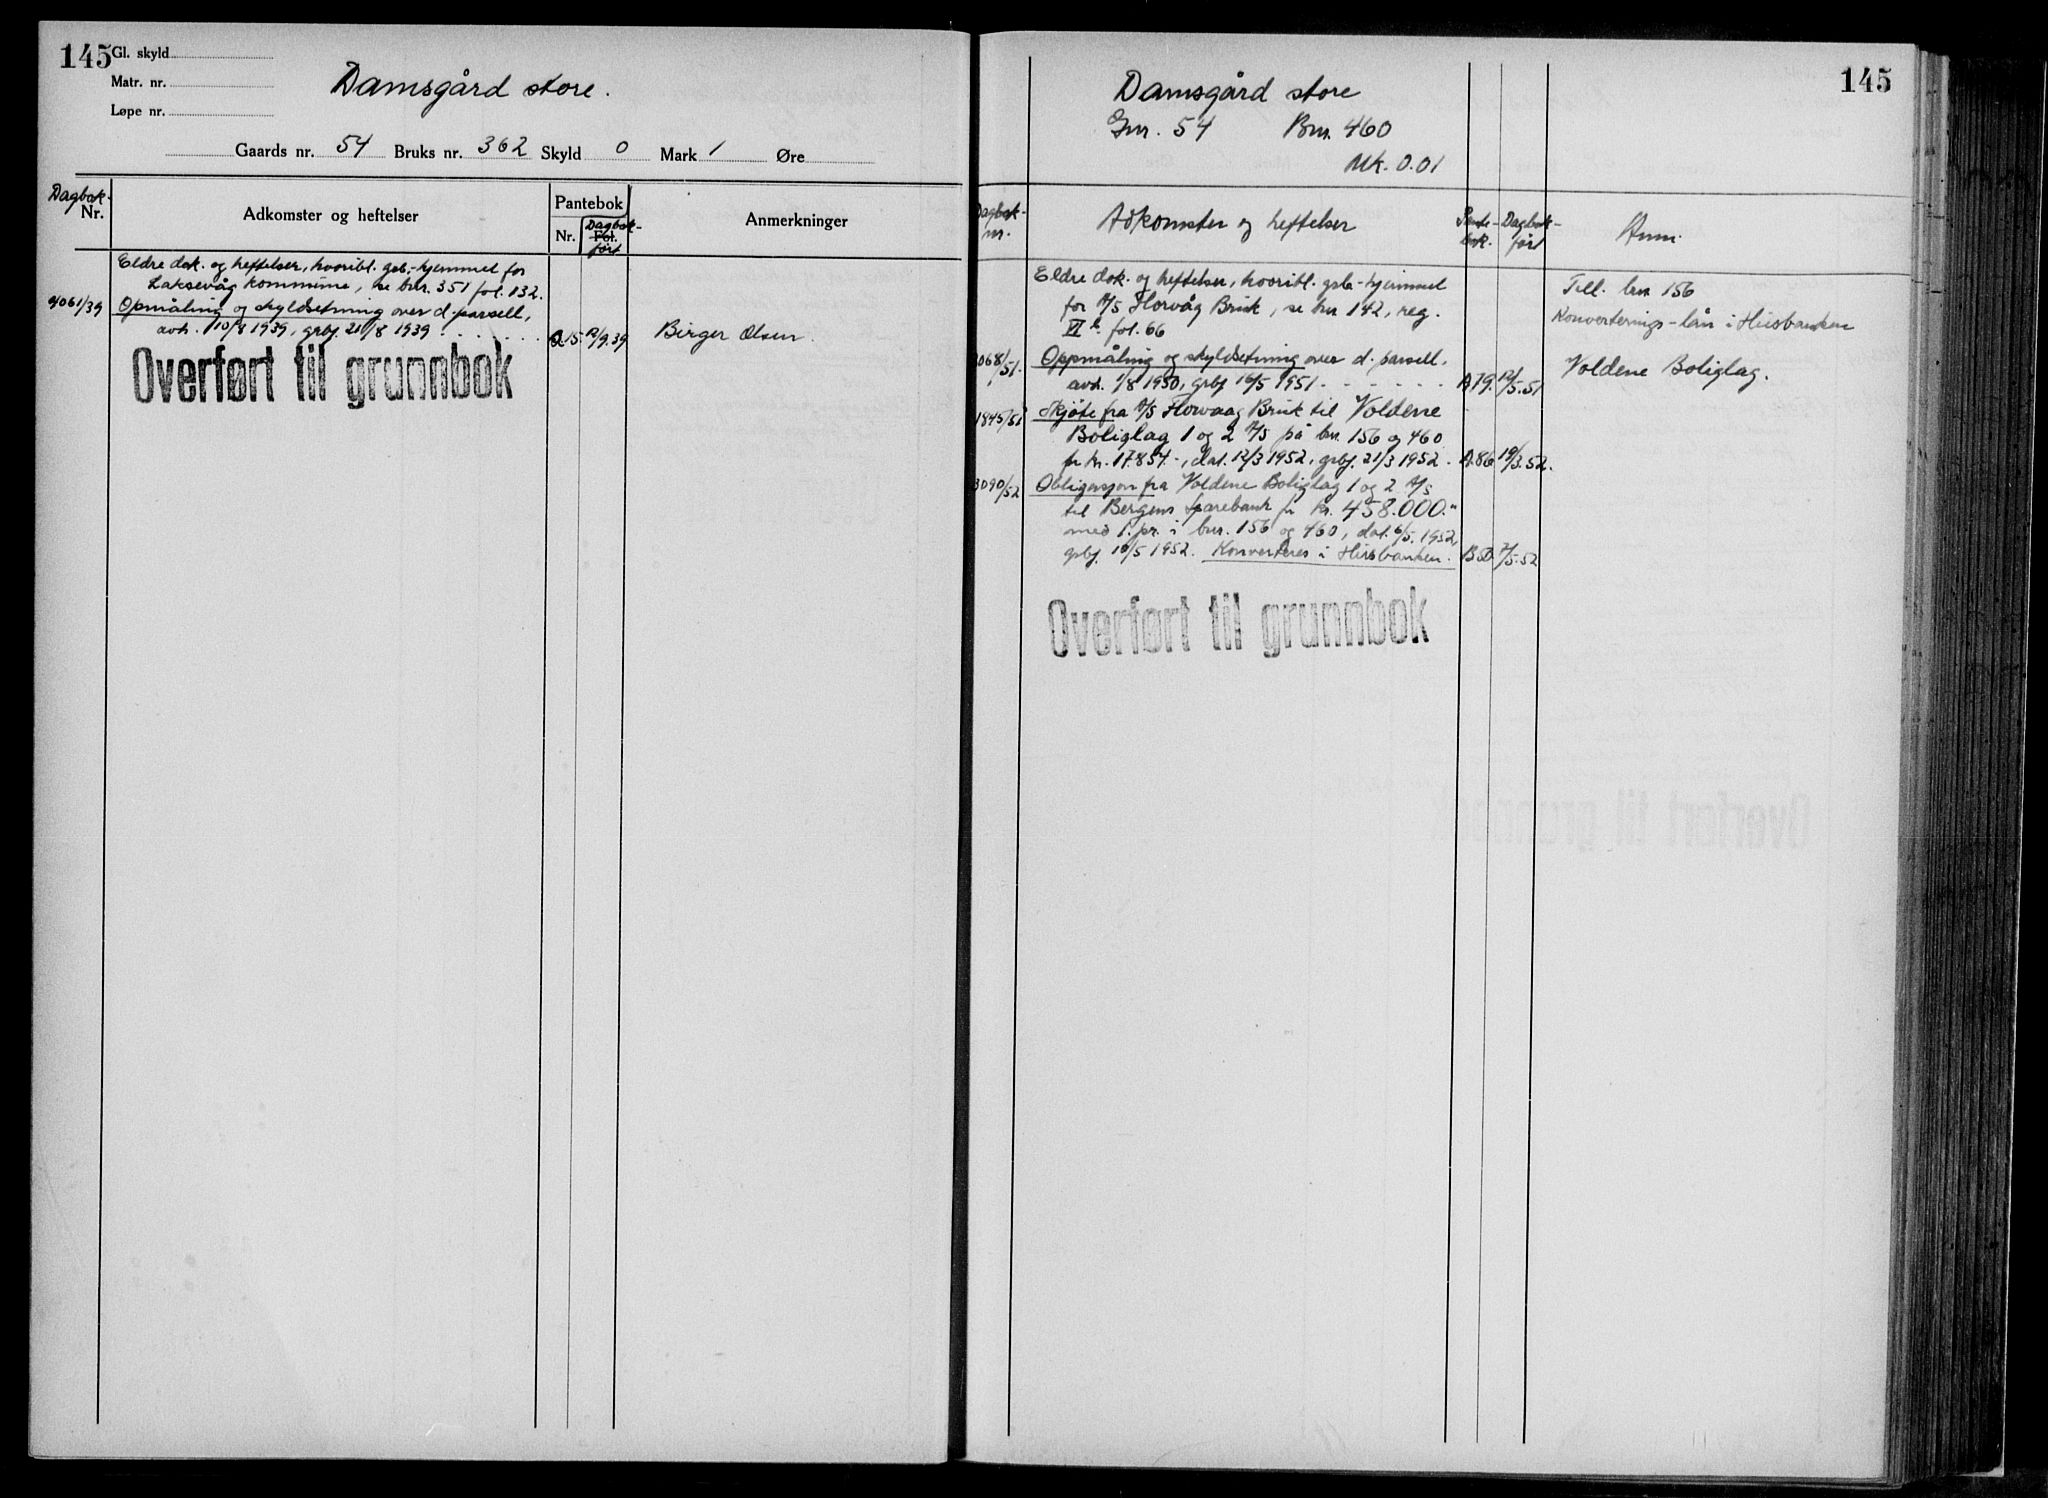 145
Gl. skyld
Matr. nr.
Løpe nr.
Damsgård store.
Gaards nr. 54 Bruks nr. 362 Skyld 0 Mark 1 Øre
Dagbok-
Nr.
Adkomster og heftelser
Pantebok
Nr.
Fol.
Dagbok-
ført
Anmerkninger
Eldre dok. og heftelser, hvoribl. gsb.-hjemmel for
Laksevåg kommune, se bnr. 351 fol. 132.
4061/39 Opmåling og skyldsetning over d. parsell,
avh. 10/8 1939, grbf. 21/8 1939 . . . . . . A 15. 12/9.39 Birger Olsen.
Overført til grunnbok
145
Damsgård store
Gnr. 54 Bnr. 460
Mk. 0.01
Dagbok-
nr.
Adkomster og heftelser
Pante-
bok.
Dagbok-
ført
Anm.
Eldre dok. og heftelser, hvoribl. gsb-hjemmel
for A/S Florvåg Bruk, se bnr 142, reg.
VI fol. 66
Till. bnr 156
Konverterings-lån i Husbanken
3068/51. Oppmåling og skyldsetning over d. parsell,
avh. 1/8 1950, grbf 16/5 1951 . . . . . . A 79. 12/5.51
Voldene Boliglag.
1845/52 Skjøte fra A/S Florvaag Bruk til Voldene
Boliglag 1 og 2 A/S på bnr. 156 og 460
for kr. 17.854.-, dat. 12/3 1952, grbf. 21/3 1952. A.86 19/3.52.
3090/52 Obligasjon fra Voldene Boliglag 1 og 2 A/S
til Bergens Sparebank for kr. 458.000."
med 1. pr. i bnr. 156 og 460, dat. 6/5. 1952,
grbf. 10/5 1952. Konverteres i Husbanken. 7/5.52
Overført til grunnbok